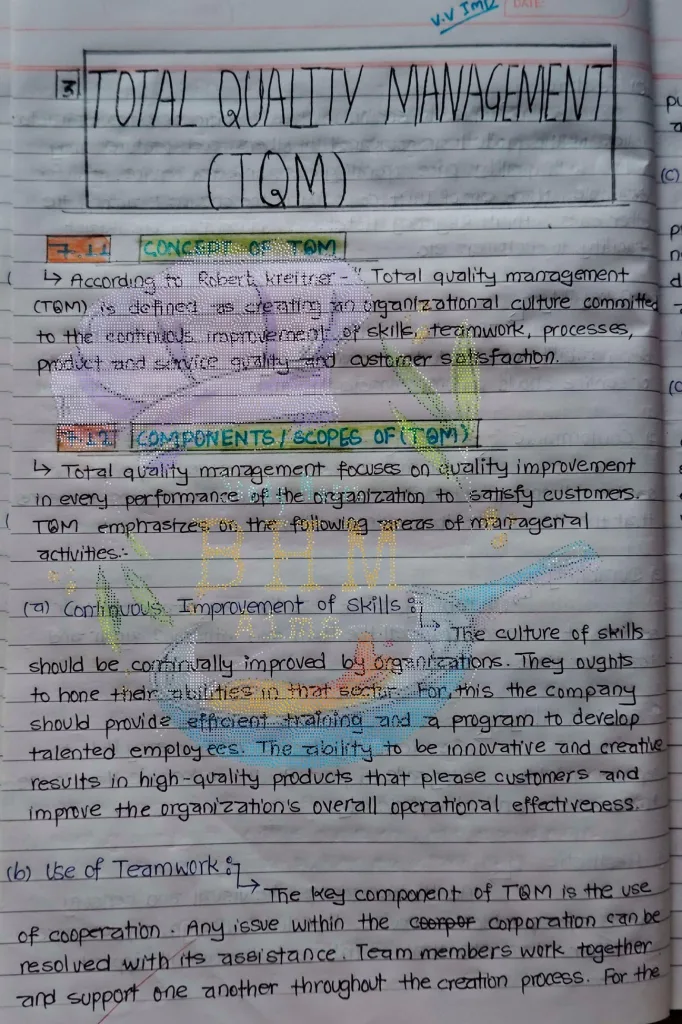 V.V IMP
DATE
TOTAL QUALITY MANAGEMENT
(TQM)
7.11 CONCEPT OF TQM
↳ According to Robert kreitner - "Total quality management
(TQM) is defined as creating an organizational culture committed
to the continuous improvement of skills, teamwork, processes,
product and service quality and customer satisfaction.
7.12 COMPONENTS / SCOPES OF (TQM)
↳ Total quality management focuses on quality improvement
in every performance of the organization to satisfy customers.
TQM emphasizes on the following areas of managerial
activities:-
BHM
Aims
(a) Continuous Improvement of skills :
↳ The culture of skills
should be continually improved by organizations. They oughts
to hone their abilities in that sector. For this the company
should provide efficient training and a program to develop
talented employees. The ability to be innovative and creative
results in high-quality products that please customers and
improve the organization's overall operational effectiveness.
(b) Use of Teamwork :
↳ The key component of TQM is the use
of cooperation. Any issue within the coorpor corporation can be
resolved with its assistance. Team members work together
and support one another throughout the creation process. For the
(C)